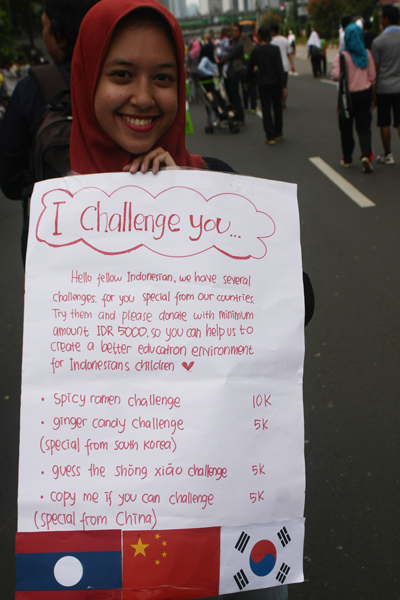 I Challenge you...
Hello fellow Indonesian, we have several
challenges for you special from our countries.
Try them and please donate with minimum
amount IDR 5000, so you can help us to
create a better education environment
for Indonesian's children ♥
• spicy ramen challenge 10K
• ginger candy challenge 5K
(special from south korea)
• guess the shōng xiāo challenge 5K
• copy me if you can challenge 5K
(special from China)